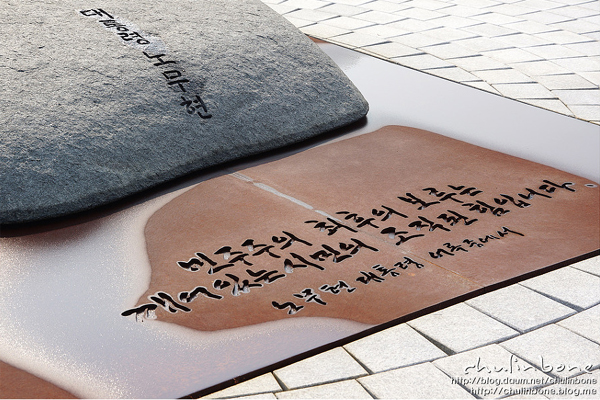 대통령 노무현
민주주의 최후의 보루는
깨어있는 시민의 조직된 힘입니다
노무현 대통령 어록 중에서
chulinbone
http://blog.daum.net/chulinbone
http://chulinbone.blog.me